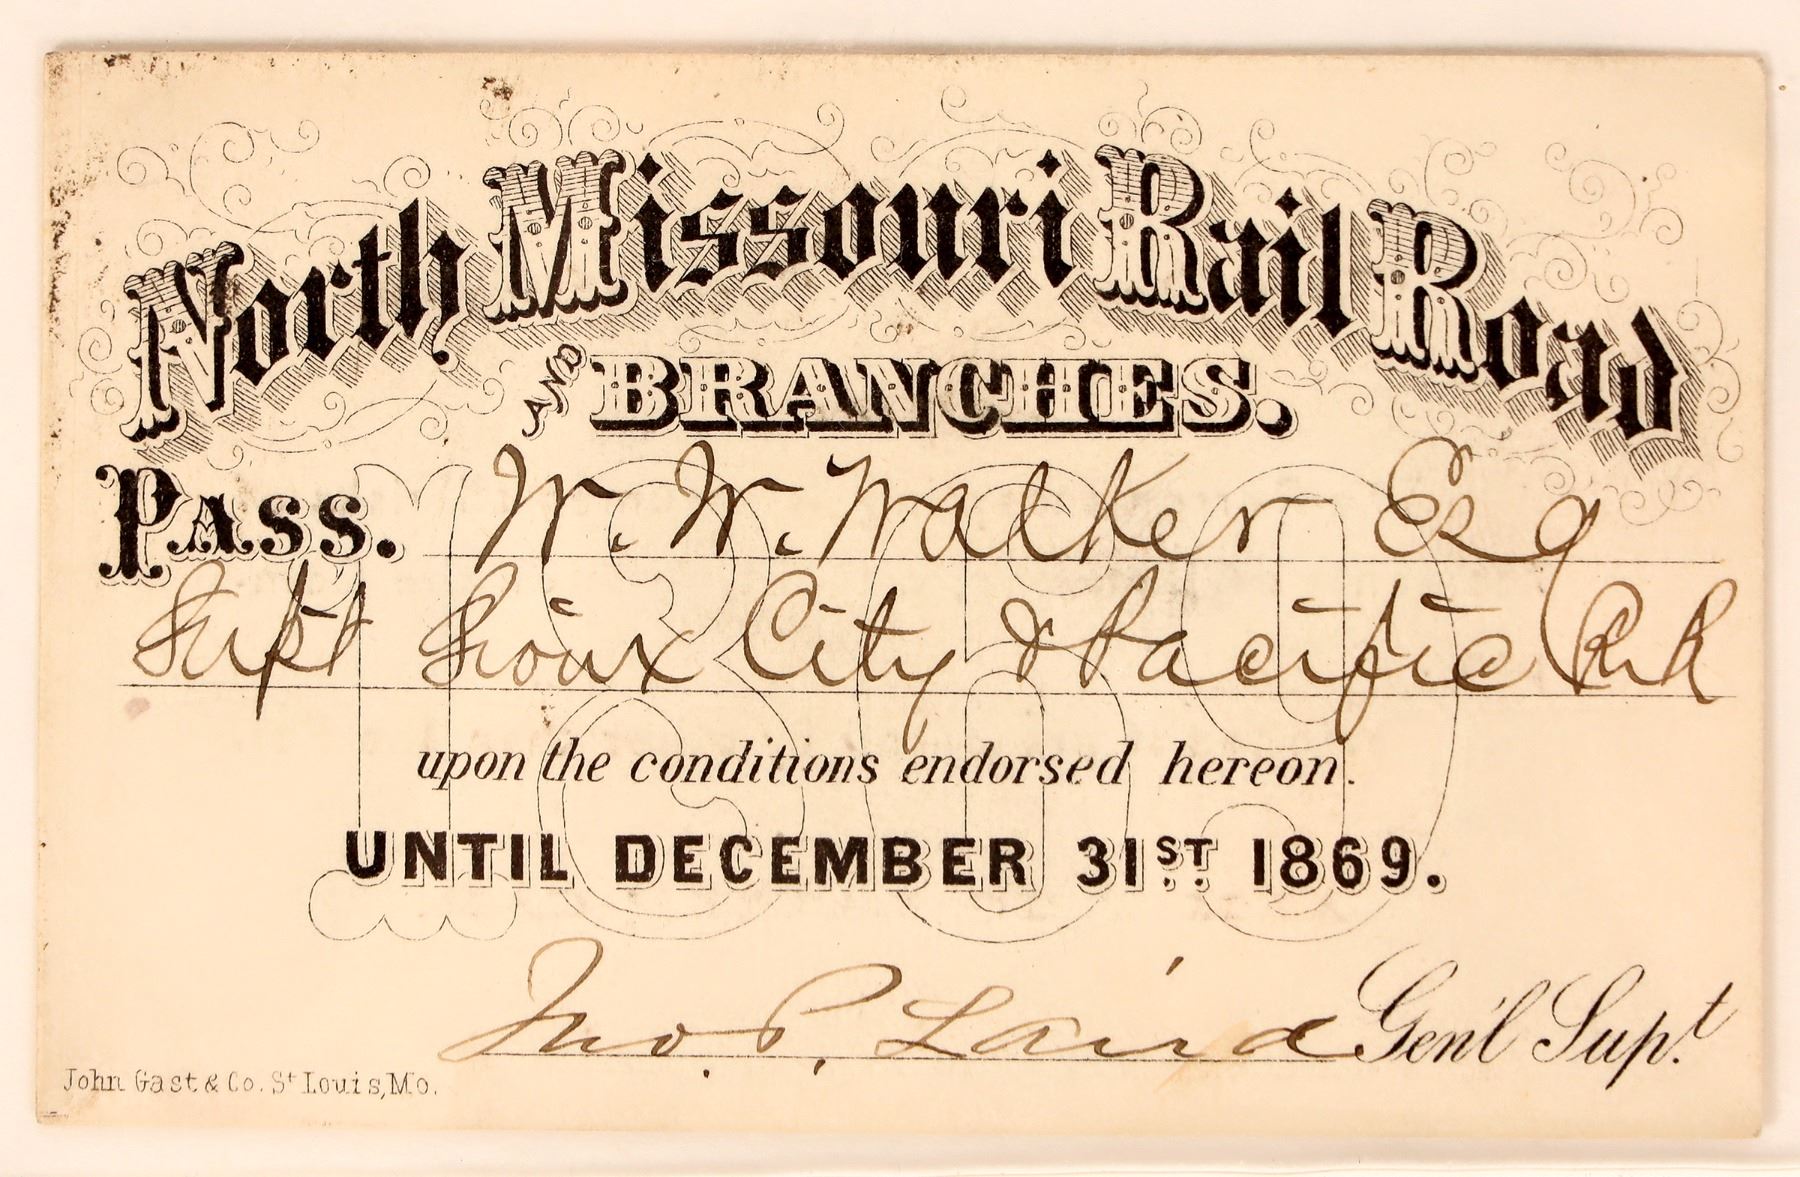 North Missouri Rail Road
AND BRANCHES.
Pass. W. W. Walker Esq
Supt Sioux City & Pacific R R
upon the conditions endorsed hereon.
UNTIL DECEMBER 31ST 1869.
Jno. P. Laird Gen'l Supt.
John Gast & Co. St Louis, Mo.
1869